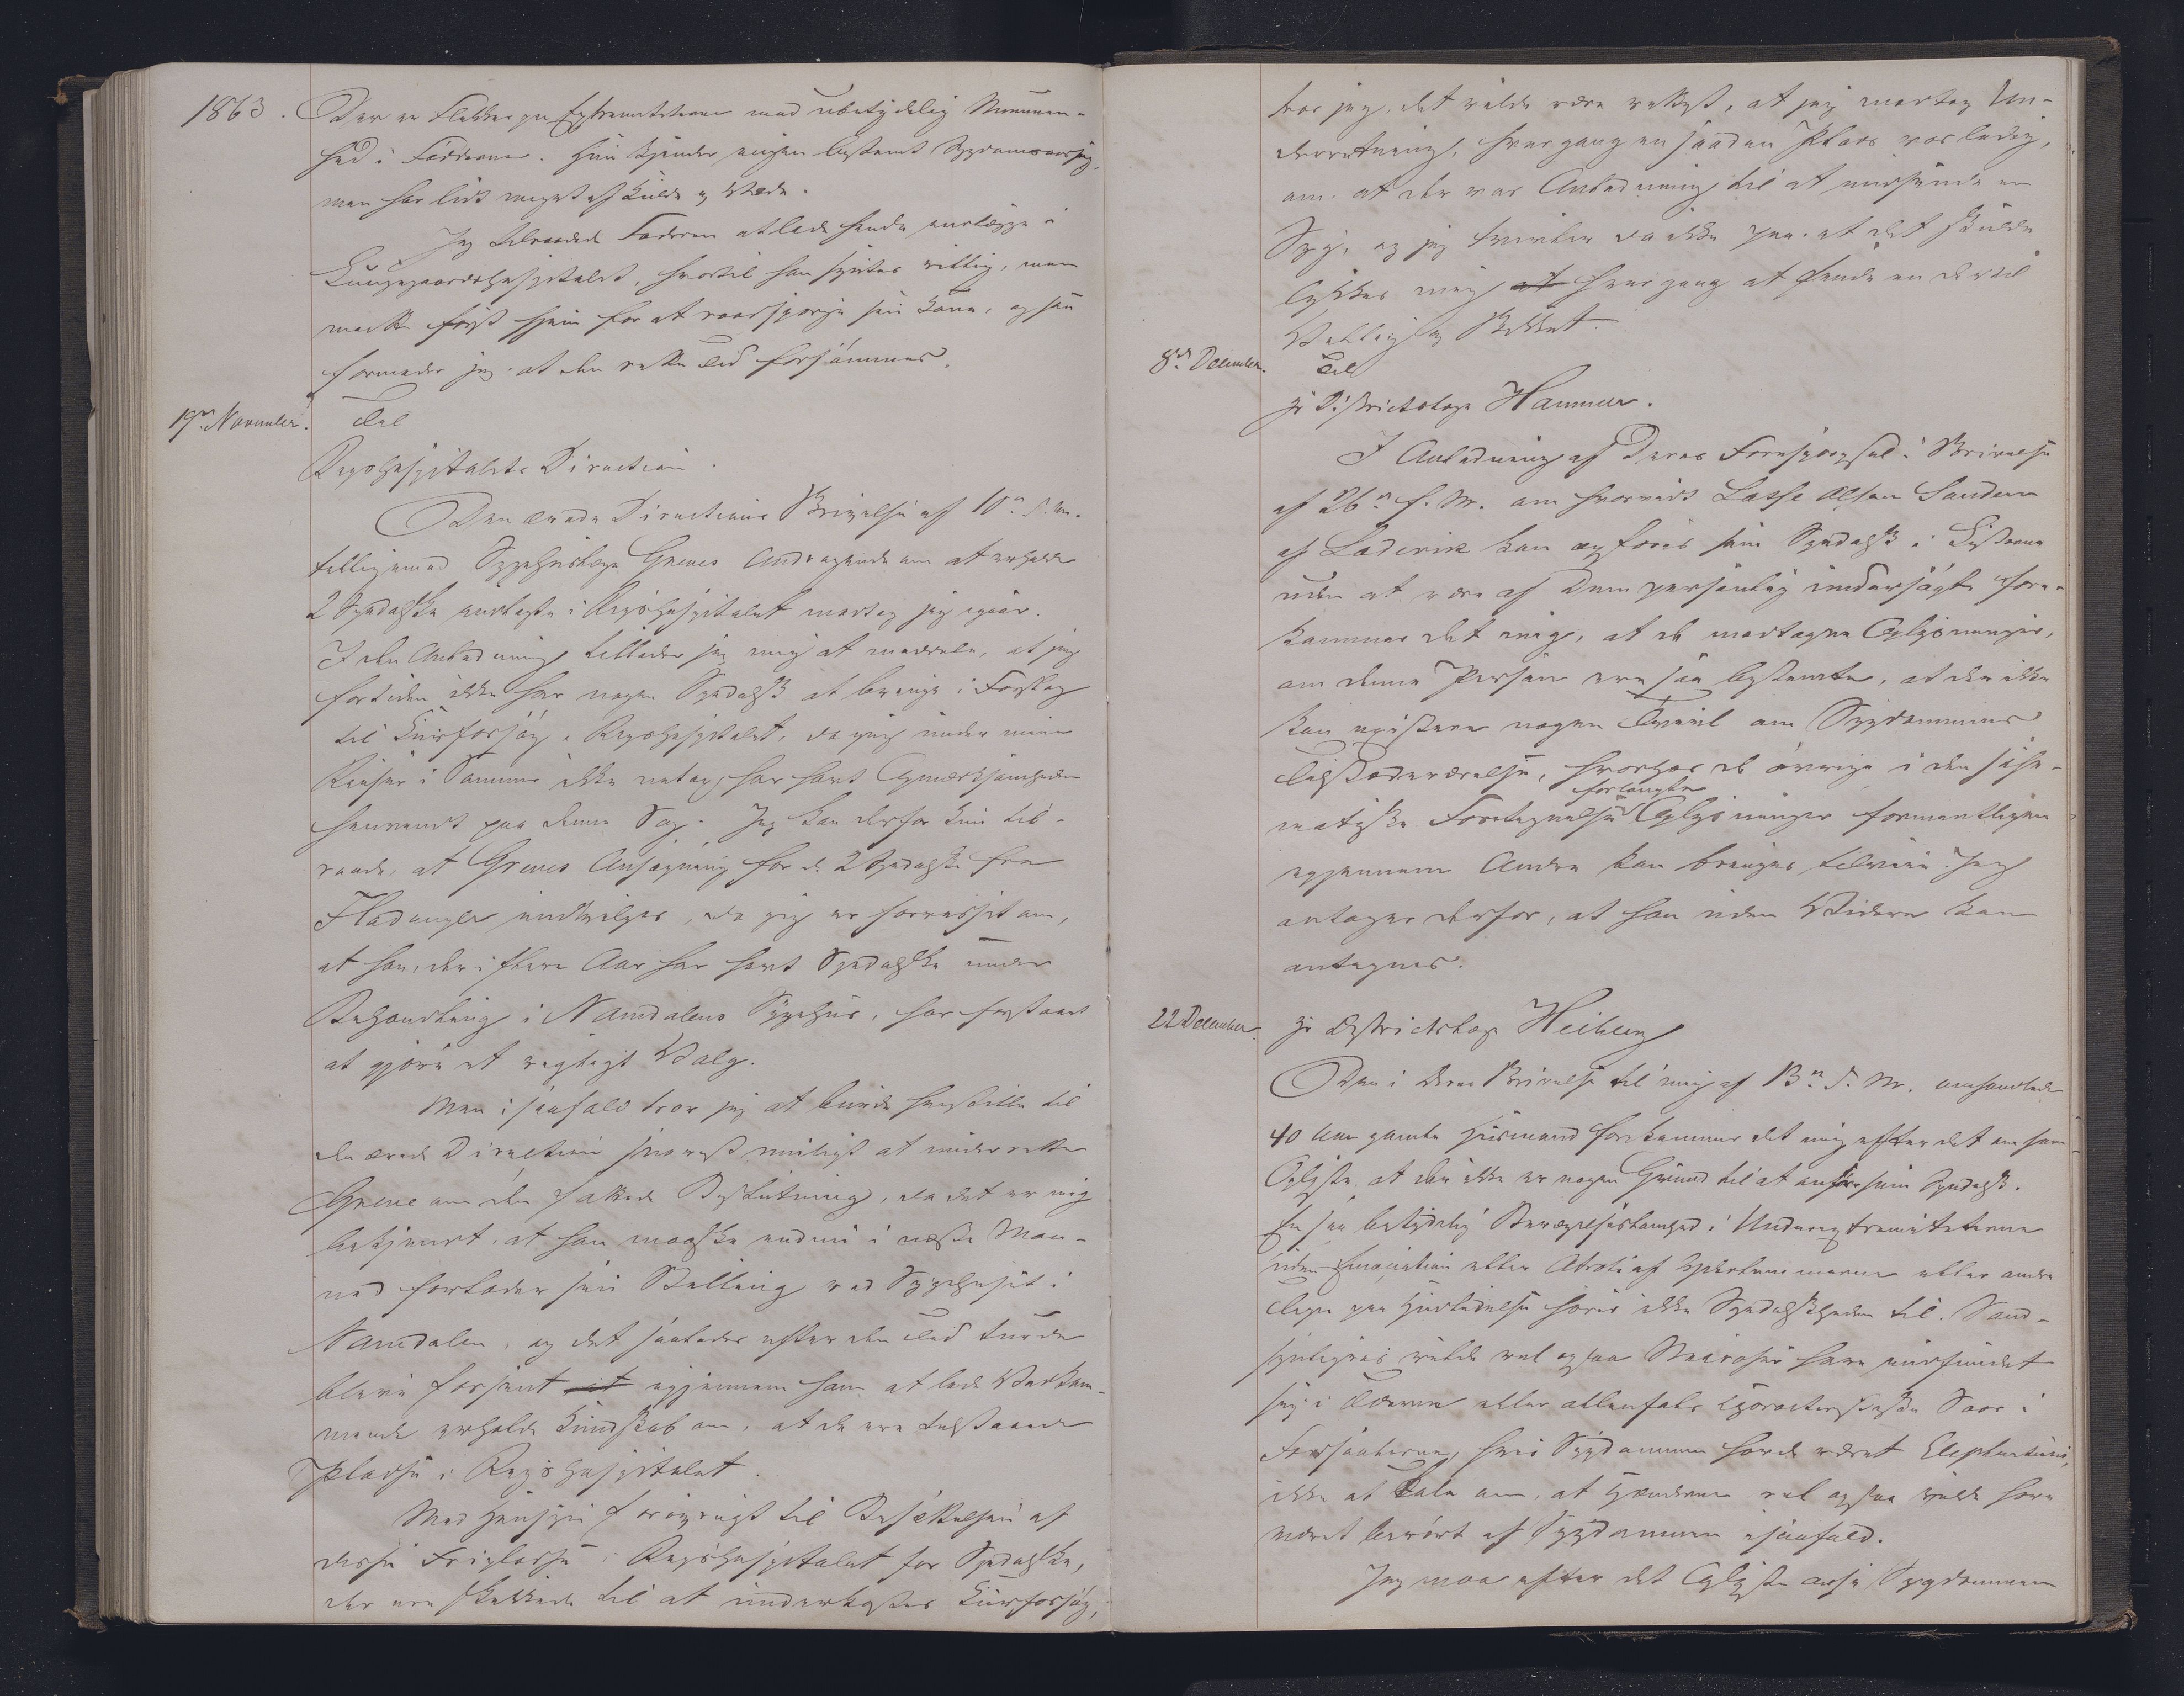 1863. Der er Flekker paa Extremiteterne med ubetydelig Nummen-
hed i Fødderne. Hun kjender ingen bestemt Sygdomsaarsag,
men har lidt meget af Kulde og Væde.
Jeg tilraadede Faderen at lade hende indlægge i
Lungegaardshospitalet, hvortil han syntes villig, men
maatte først hjem for at raadspørge sin Kone, og saa
formoder jeg, at den rette Tid forsømmes.
19de November. Til
Rigshospitalets Direction.
Den ærede Directions Skrivelse af 10de d. M.
tilligemed Sygehuslæge Greves Andragende om at erholde
2 Spedalske indlagte i Rigshospitalet modtog jeg igaar.
I den Anledning tillader jeg mig at meddele, at jeg
fortiden ikke har nogen Spedalsk at bringe i Forslag
til Kurforsøg i Rigshospitalet, da jeg under mine
Reiser i Sommer ikke netop har havt Opmærksomheden
henvendt paa denne Sag. Jeg kan derfor kun til-
raade, at Greves Ansøgning for de 2 Spedalske fra
Fladanger indvilges, da jeg er forvisset om,
at han, der i flere Aar har havt Spedalske under
Behandling i Namdalens Sygehus, har forstaaet
at gjøre et rigtigt Valg.
Men i saafald tror jeg at burde henstille til
den ærede Direction snarest muligt at underrette
Greve om den fattede Beslutning, da det er mig
bekjendt, at han maaske endnu i næste Maa-
ned forlader sin Stilling ved Sygehuset i
Namdalen, og det saaledes efter den Tid turde
blive forsent at igjennem ham at lade Vedkom-
mende erholde Kundskab om, at de ere tilstaaede
Pladse i Rigshospitalet.
Med Hensyn forøvrigt til Besættelsen af
disse Fripladse i Rigshospitalet for Spedalske,
der ere skikkede til at underkastes Kurforsøg,
tror jeg, det vilde være rettest, at jeg modtog Un-
derretning, hver gang en saadan Plads var ledig,
om, at der var Anledning til at indsende en
Syg, og jeg tvivler da ikke paa, at det skulde
lykkes mig at hver gang at finde en dertil
Villig og Skikket.
8de December. Til
Hr Districtslæge Hammer.
I Anledning af Deres Forespørgsel i Skrivelse
af 26de f. M. om hvorvidt Lasse Olsen Sanden
af Ladevik kan opføres som Spedalsk i Listerne
uden at være af Dem personlig undersøgt fore-
kommer det mig, at de modtagne Oplysninger,
om denne Person ere saa bestemte, at der ikke
kan existere nogen Tvivl om Sygdommens
Tilstedeværelse, hvorhos de øvrige i den sche-
matiske Fortegnelse forlangte Oplysninger formentligen
igjennem Andre kan bringes tilveie. Jeg
antager derfor, at han uden Videre kan
antegnes.
22 December. Hr Districtslæge Heiberg
Den i Deres Skrivelse til mig af 13de d. M. omhandlede
40 Aar gamle Husmand forekommer det mig efter det om ham
Oplyste, at der ikke er nogen Grund til at anføre som Spedalsk.
En saa betydelig Bevægelseslamhed i Underextremiteterne
uden Emaciation eller Atrofi af Hjerte eller andre
Tegn paa hører ikke Spedalskheden til. Sand-
synligvis vilde vel ogsaa Necroser have indfundet
sig i Tæerne eller allenfals characteristiske Saar i
Fodsaalerne, hvis Sygdommen havde været Elephantiasis,
ikke at tale om, at Hænderne vel ogsaa vilde have
været berørt af Sygdommen isaafald.
Jeg maa efter det Oplyste ansee Sygdommen